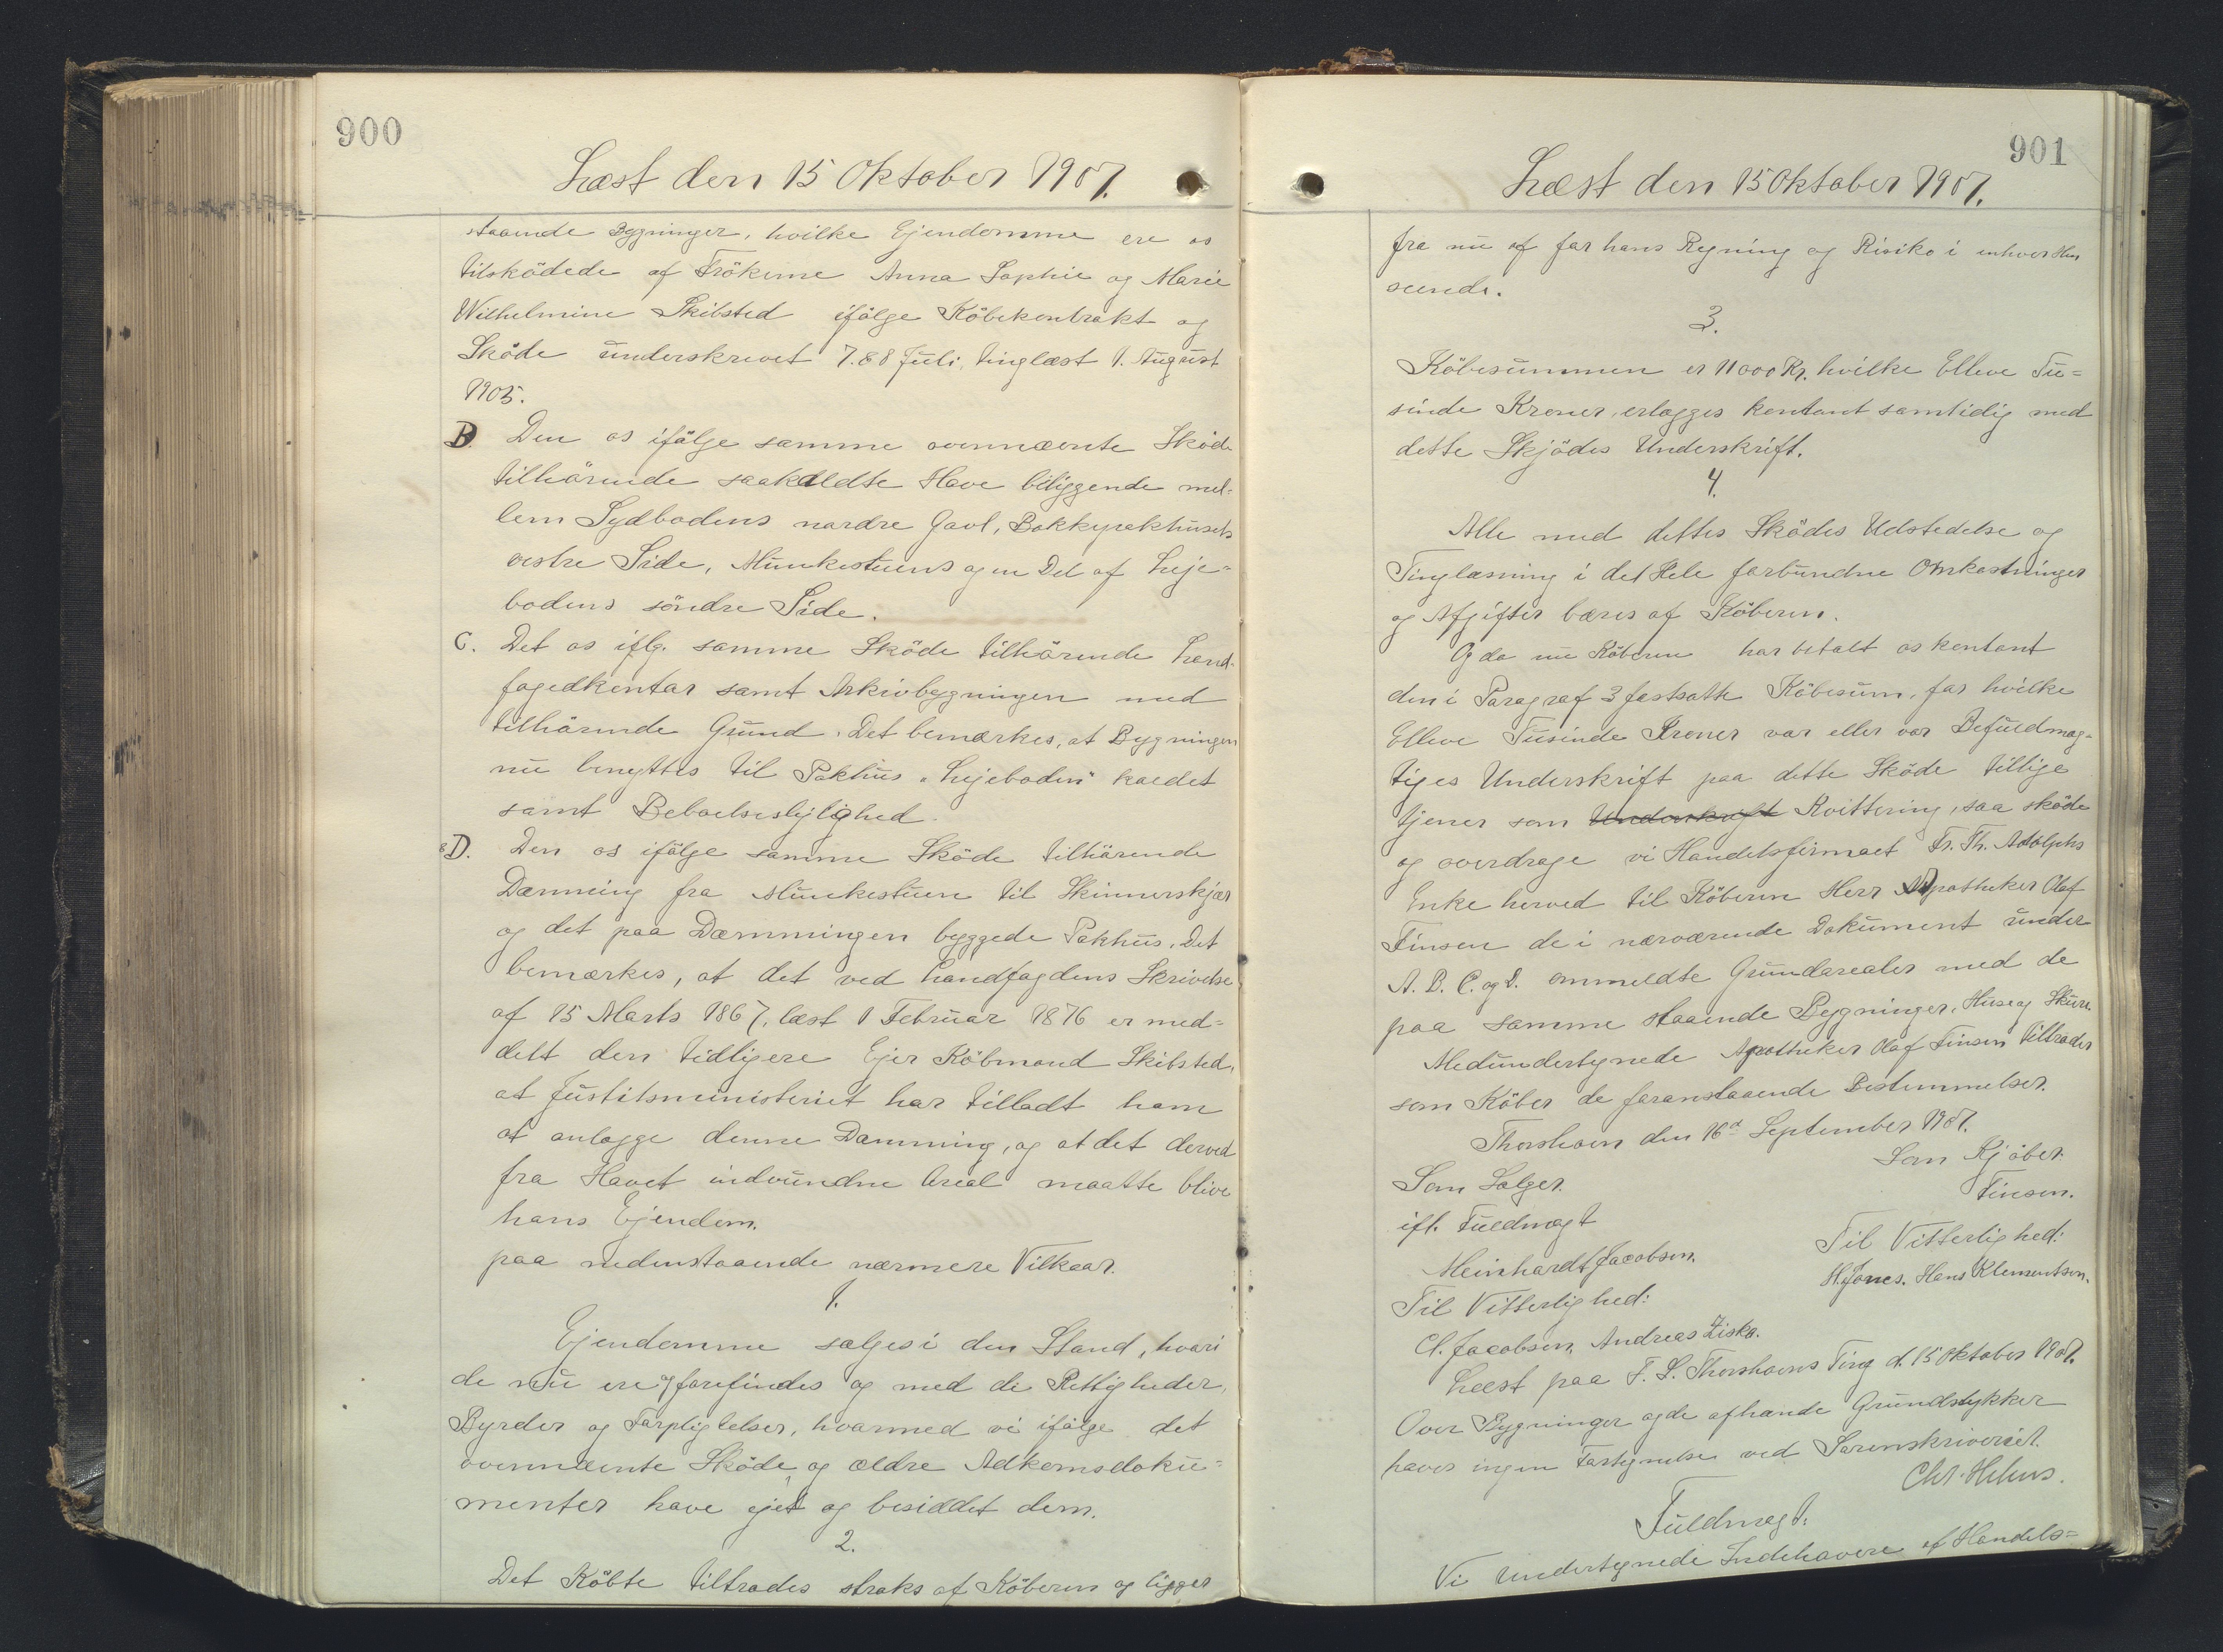 900
Læst den 15 Oktober 1907.
staaende Bygninger, hvilke Ejendomme ere os
tilsködede af Fröknene Anna Sophie og Marie
Wilhelmine Skibsted ifölge Köbekontrakt og
Sköde underskrevet 7. & 8 Juli, tinglæst 1. August
1905.
B. Den os ifölge samme ovennævnte Sköde
tilhörende saakaldte Have beliggende mel=
lem Sydbodens nordre Gavl, Bakkepakhusets
vestre Side, Munkestuens og en Del af Leje=
bodens söndre Side.
C. Det os iflg. samme Sköde tilhörende Land=
fogedkontor samt Arkivbygningen med
tilhörende Grund. Det bemærkes, at Bygningen
nu benyttes til Pakhus "Lejeboden" kaldet
samt Beboelseslejlighed.
& D. Den os ifölge samme Sköde tilhörende
Dæmning fra Munkestuen til Skinnerskjær
og det paa Dæmningen byggede Pakhus. Det
bemærkes, at det ved Landfogdens Skrivelse
af 15 Marts 1867, læst 1 Februar 1876 er med=
delt den tidligere Ejer Köbmand Skibsted,
at Justitsministeriet har tilladt ham
at anlægge denne Dæmning, og at det derved
fra Havet indvundne Areal maatte blive
hans Ejendom.
paa nedenstaaende nærmere Vilkaar.
1.
Ejendomme sælges i den Stand, hvori
de nu ere og forefindes og med de Rettigheder,
Byrder og Forpligtelser, hvormed vi ifölge det
ovennævnte Sköde og ældre Adkomsdoku=
menter have ejet og besiddet dem.
2.
Det Köbte tiltrædes straks af Köberen og ligger
901
Læst den 15 Oktober 1907.
fra nu af for hans Regning og Risiko i enhver Hen
seende.
3.
Köbesummen er 11000 Kr. hvilke Elleve Tu=
sinde Kroner, erlægges kontant samtidig med
dette Skjödes Underskrift.
4.
Alle med dettes Sködes Udstedelse og
Tinglæsning i det Hele forbundne Omkostninger
og Afgifter bæres af Köberen.
Og da nu Köberen har betalt os kontant
den i Paragraf 3 fastsatte Köbesum, for hvilke
Elleve Tusinde Kroner vor eller vor Befuldmæg=
tiges Underskrift paa dette Sköde tillige
tjener som Underskrift Kvittering, saa sköde
og overdrage vi Handelsfirmaet Fr. Th. Adolphs
Enke herved til Köberen Herr Apotheker Olaf
Finsen de i nærværende Dokument under
A. B. C. og D. ommeldte Grundarealer med de
paa samme staaende Bygninger, Huse og Skure.
Medundertegnede Apotheker Olaf Finsen tiltræder
som Köber de foranstaaende Bestemmelser.
Thorshavn den 16d September 1907.
Som Kjöber.
Som Sælger.
Finsen.
ifl. Fuldmagt
Til Vitterlighed:
Meinhardt Jacobsen.
H. Jones. Hans Klementsen.
Til Vitterlighed:
Cl. Jacobsen. Andreas Ziska.
Læst paa F. S. Thorshavns Ting d. 15 Oktober 1907.
Over Bygninger og de afhænde Grundstykker
haves ingen Fortegnelse ved Sorenskriveriet.
Chr. Hehus.
Fuldmagt.
Vi undertegnede Indehavere af Handels=